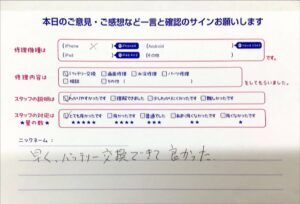 本日のご意見・ご感想など一言と確認のサインお願いします
修理機種は
iPhone X
Android
iPad
その他
です。
修理内容は
バッテリー交換 画面修理 水没修理 パーツ修理
相談 その他
をしてもらいました。
スタッフの説明は
わかりやすかったです 理解できました 少しわかりにくかったです 難しかったです
スタッフの対応は
★星の数★
とても良かったです 良かったです 普通でした あまり良くなかったです 良くなかったです
★★★★★ ★★★★ ★★★ ★★ ★
ニックネーム:
早く、バッテリー交換できて良かった